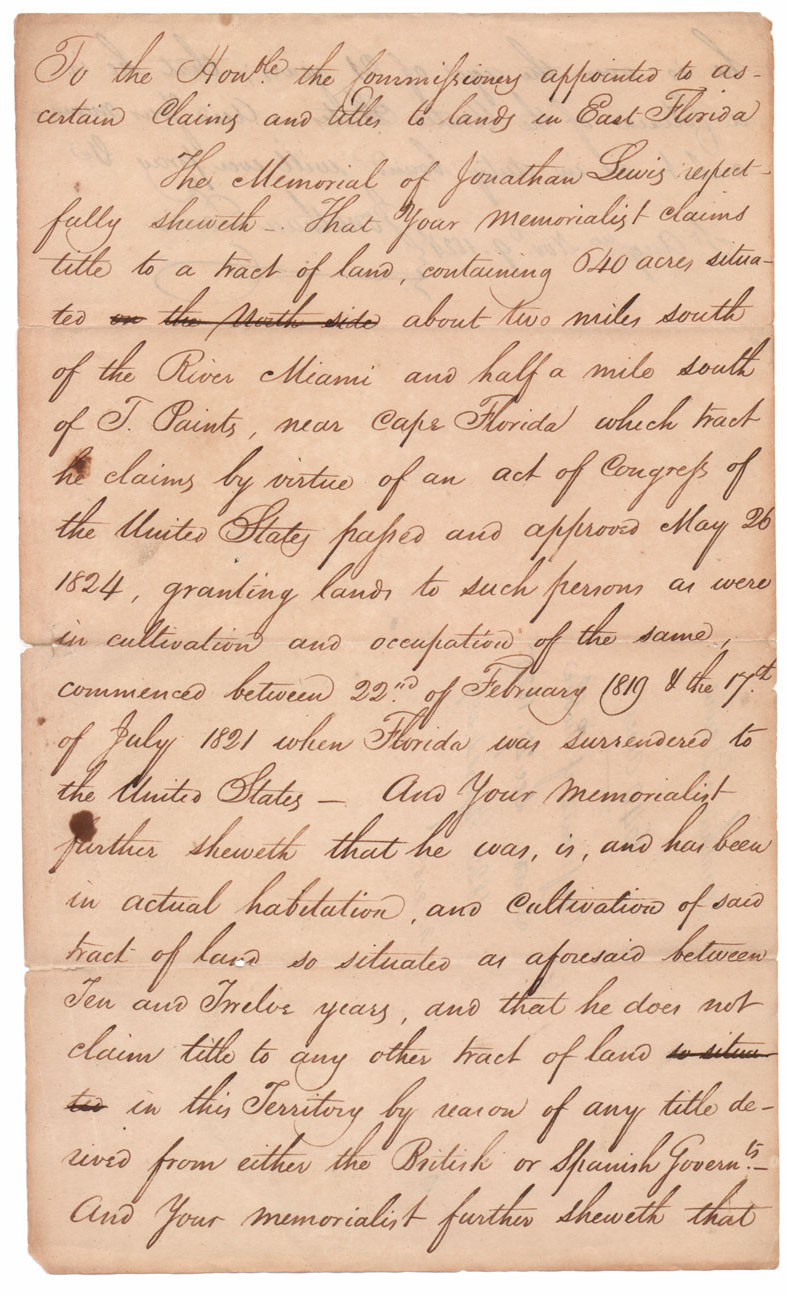 To the Honble. the Commissioners appointed to as-
certain Claims and titles to lands in East Florida
The Memorial of Jonathan Lewis respect-
fully sheweth -. That Your memorialist claims
title to a tract of land, containing 640 acres situa-
ted on the North side about two miles south
of the River Miami and half a mile south
of T. Paints, near Cape Florida which tract
he claims by virtue of an act of Congress of
the United States passed and approved May 26
1824, granting lands to such persons as were
in cultivation and occupation of the same,
commenced between 22nd. of February 1819 & the 17th.
of July 1821 when Florida was surrendered to
the United States - And Your memorialist
further sheweth that he was, is, and has been
in actual habitation, and Cultivation of said
tract of land so situated as aforesaid between
Ten and Twelve years, and that he does not
claim title to any other tract of land so situa-
ted in this Territory by reason of any title de-
rived from either the British or Spanish Governts.-
And Your memorialist further sheweth that